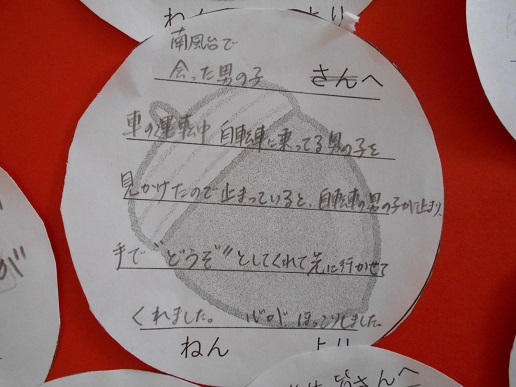 ねん より
南風台で
会った男の子 さんへ
車の運転中 自転車に乗ってる男の子を
見かけたので止まっていると、自転車の男の子が止まり、
手で"どうぞ"としてくれて先に行かせて
くれました。 心が ほっこりしました。
ねん より
皆さんへ